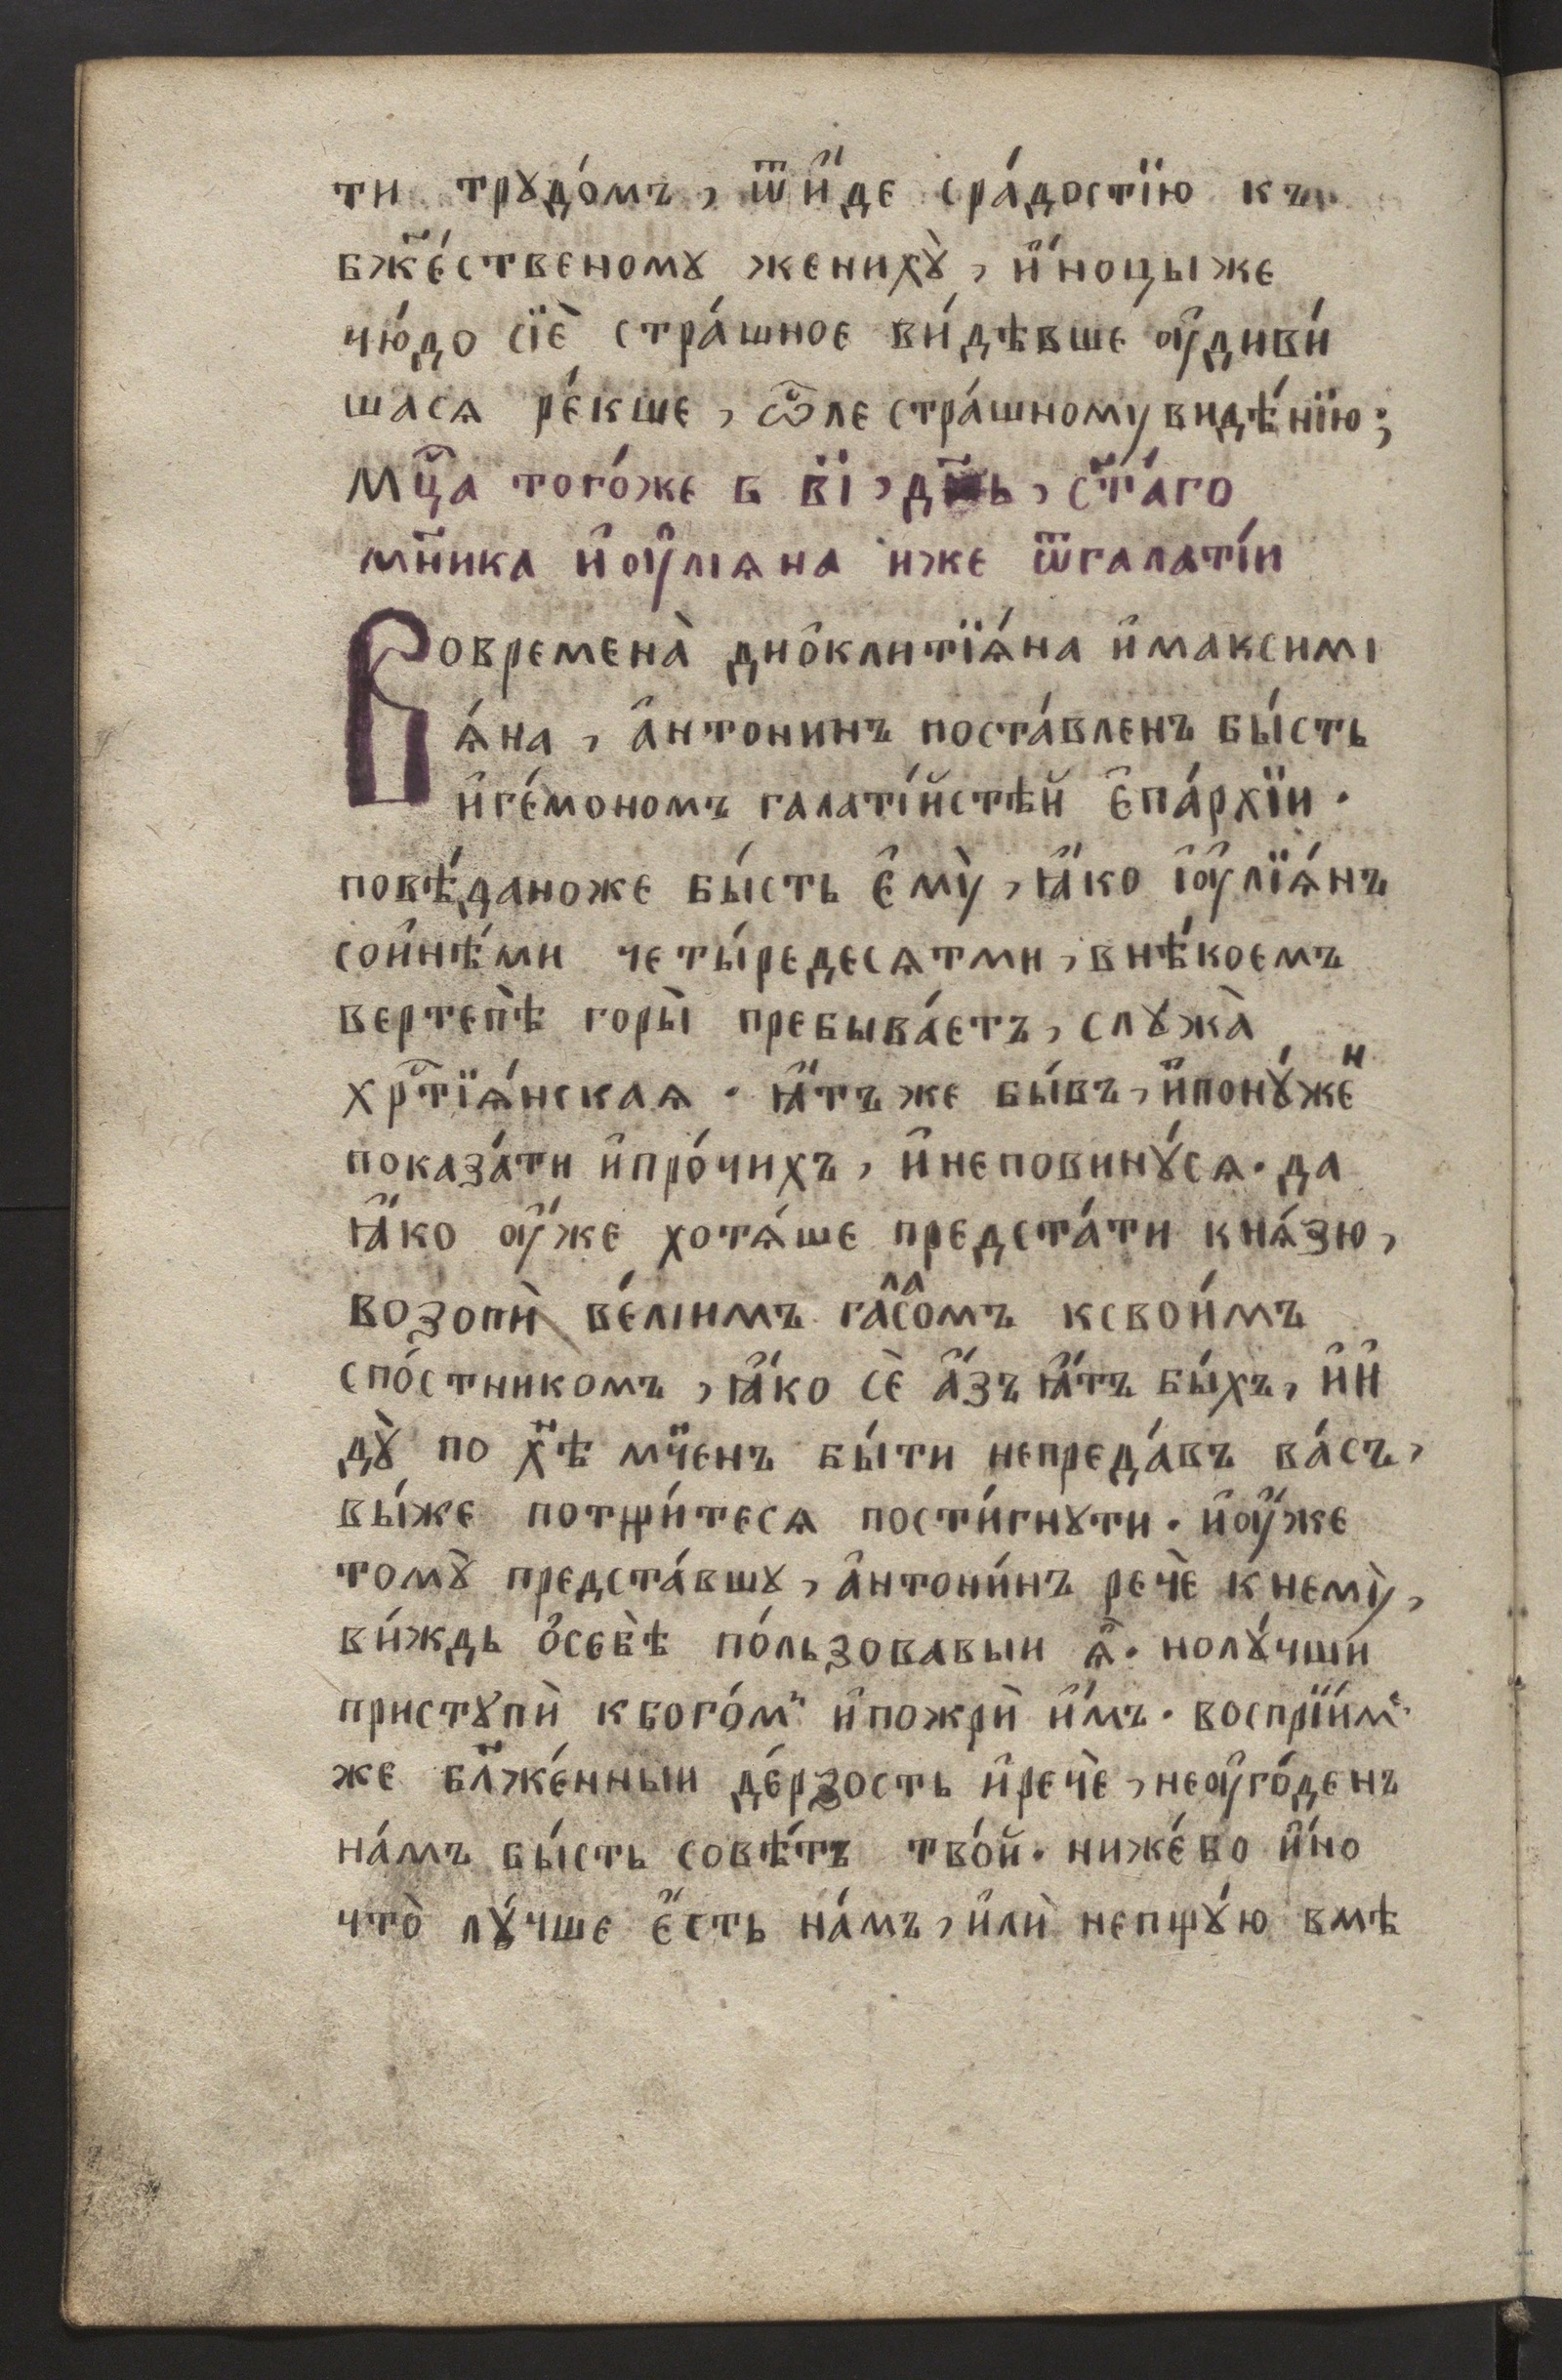 ти трꙋдо́мъ, ѿи҆́де сра́достїю къ
бж҃е́ственомꙋ женихꙋ̀, и҆́ноцыже
чю́до сїѐ стра́шное ви́дѣвше оу҆диви́
шасѧ ре́кше, ѽле стра́шному видѣ́нїю;
Мц҃а того́же в в҃і, дн҃ь, ст҃а́го
мч҃ника и҆оу҆лїѧна иже ѿгалаті́и
Вовремена̀ дио҆клитїѧ́на и҆максимі
ѧ́на, а҆нтонинъ поста́вленъ бы́сть
и҆ге́мономъ галаті́йстѣй є҆па́рхїи.
повѣ́даноже бы́сть є҆мꙋ̀, ꙗ҆́ко і҆оу҆лїѧ́нъ
сои҆нѣ́ми четы́редесѧтми, внѣ́коемъ
вертепѣ̀ горы̀ пребыва́етъ, слꙋжа̀
хрⷭ҇тїѧ́нскаѧ. ꙗ҆́тъ же бы́въ, и҆понꙋ́жеⷩ
показа́ти и҆про́чихъ, и҆неповинꙋ́сѧ. да
ꙗ҆́ко оу҆́же хотѧ́ше предста́ти кнѧ́зю,
возопѝ ве́лїимъ гла́сомъ ксвои́мъ
спо́стникомъ, ꙗ҆́ко сѐ а҆́зъ ꙗ҆́тъ бы́хъ, и҆и҆
дꙋ̀ по хⷭ҇ѣ мч҃енъ бы́ти непреда́въ ва́съ,
вы́же потщи́тесѧ пости́гнꙋти. и҆оу҆́же
томꙋ̀ предста́вшꙋ, а҆нтони́нъ речѐ кнемꙋ̀,
ви́ждь ѻ҆себѣ̀ по́льзовавыи ѧ҆̀. нолꙋ́чши
пристꙋпѝ кбого́мъ и҆пожрѝ и҆̀мъ. воспрїи́мъ
же бл҃же́нныи де́рзость и҆речѐ, неоу҆го́денъ
на́мъ бы́сть совѣ́тъ тво́й. ниже́бо и҆́но
что̀ лꙋ́чше є҆́сть на́мъ, и҆лѝ непщꙋ́ю вмѣ